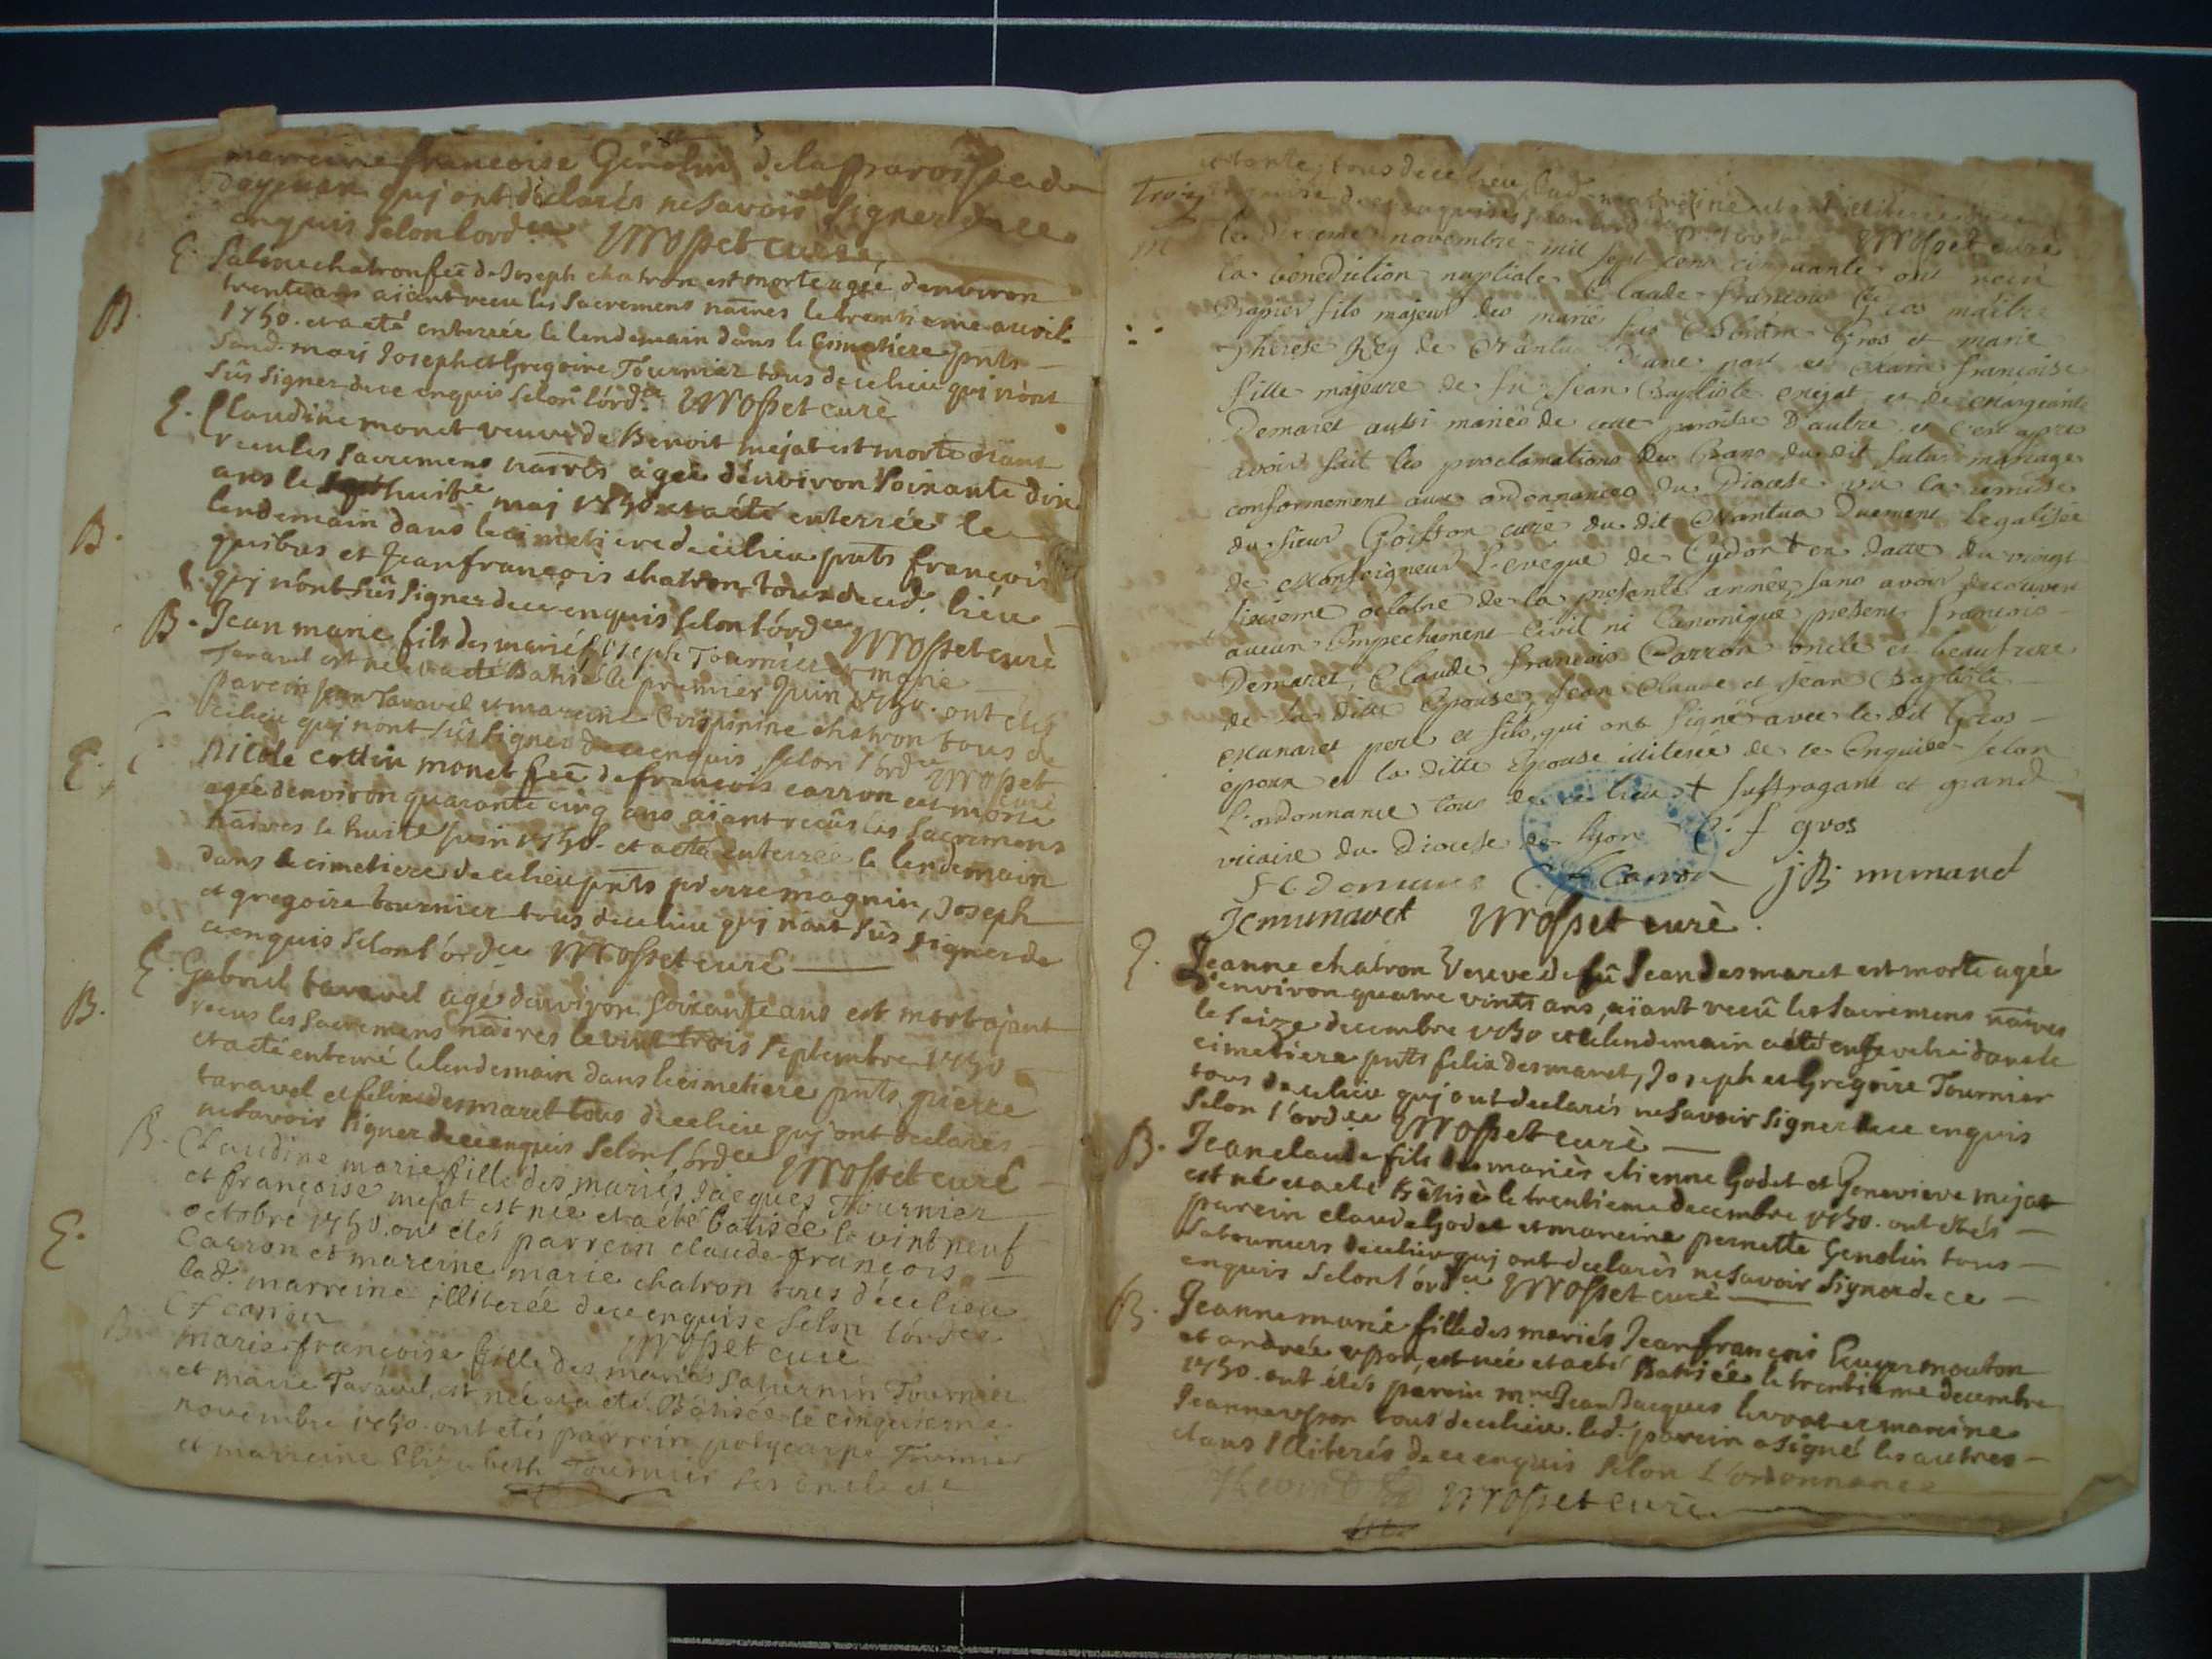 marreine francoise Génolin de la paroisse de
Doyenan quj ont déclarés ne savoir signer de ce
enquis selon lord.ce Mosset curé
E. chatron feẽ de Joseph chatron est morte agée denviron
trente ans aiant receu les sacremens naires le trentieme avril
B.
1750. et a eté enterrée le lendemain dans le Cimetiere pnts
Joseph et Gregoire Tournier tous de ce lieu quj nont
sûs signer de ce enquis selon lord.ce Mosset curé
E. Claudine monet veuve de Benoit méjat est morte aiant
receu les sacremens naires agée denviron soixante dix
ans le huite maj 1750 et a été enterrée le
B.
lendemain dans le cimetiere de ce lieu pnts françois
guibus et Jean françois chatron tous de ced. lieu
quj nont sûs signer de ce enquis selon lord.ce Mosset curé
B. Jean marie fils des mariés Joseph Tournier et marie
Taravel est né et a eté Batisé le premier Juin 1750. ont etés
parein Jean Taravel et mareine Crispinine chatron tous de
ce lieu quj nont sûs signer de ce enquis selon lord.ce Mosset
curé
E. E.
nicole cottin monet feẽ de françois carron est morte
agée denviron quarante cinq ans aiant recûs les sacremens
naires le huite Juin 1750. et a eté enterrée le lendemain
dans le cimetiere de ce lieu pnts pierre magnin, Joseph
et gregoire tournier tous de ce lieu quj nont sûs signer de
ce enquis selon lord.ce Mosset curé
E. Gabriel taravel agé denviron soixante ans est mort ajant
B.
receus les sacremens naires le vint trois septembre 1750
et a eté enterré le lendemain dans le cimetiere pnts pierre
taravel et felix desmaret tous de ce lieu quj ont declarés
ne savoir signer de ce enquis selon lord.ce Mosset curé
B. Claudine marie fille des mariés Jacques Tournier
et françoise mejat est née et a été batisée le vint neuf
octobre 1750. ont etés parrein claude françois
E.
Carron et mareine marie chatron tous de ce lieu
lad. marreine illiterée de ce enquise selon lord.ce
C f carron Mosset curé
B. marie françoise fille des mariés saturnin Tournier
et marie Taravel, est née et a eté Bâtisée le cinquieme
novembre 1750. ont etés parrein polycarpe Tournier
et marreine Elizabeth Tournier ses oncle et
et tante tous de ce lieu
Troiz Mosset curé
M
le novembre mil sept cens cinquante ont reçu
la bénédiction nuptiale Claude françois Gros maître
Drapier fils majeur des mariés feu Gros et marie
Therese Rey de Nantua d'une part et marie françoise
fille majeure de fû Jean Baptiste mejat et de
Demaret aussi mariés de cette paroisse D'autre et c'est apres
avoir fait les proclamations des Bans du dit futur mariage
conformement aux ordonnances du Diocese vu la remise
du sieur Goiffon curé du dit Nantua Duement Legalisée
de Monseigneur L'evêque de Cydon + en datte du vingt
sixieme octobre de la presente année, sans avoir decouvert
aucun Empechement Civil ni Canonique present françois
Demaret, Claude françois Carron oncle et beaufrere
de la ditte Epouse, Jean Claude et Jean Baptiste
pere et fils, qui ont signé avec le dit Gros
époux et la ditte Epouse illiterée de ce Enquise selon
l'ordonnance tous de ce lieu + suffragant et grand
vicaire du Diocese de Lyon C. f gros
C f Carron
Mosset curé
E. Jeanne chatron Veuve de fû Jean desmaret est morte agée
d'environ quatre vints ans, aïant receû les sacremens naires
le seize decembre 1750 et le lendemain a eté ensevelie dans le
cimetiere pnts felix desmaret, Joseph et Gregoire Tournier
tous de ce lieu quj ont declarés ne savoir signer de ce enquis
selon l'ord.ce Mosset curé
B. Jean claude fils des mariés etienne Godet et Genevieve mejat
est né et a eté Bâtisé le trentieme decembre 1750. ont etés
parein claude Godet et mareine pernette Genolin tous
de ce lieu quj ont declarés ne savoir signer de ce
enquis selon l'ord.ce Mosset curé
B. Jeanne marie fille des mariés Jean françois mouton
et andrée est née et a eté Batisée le trentieme decembre
1750. ont étés parein Jean Jacques et mareine
Jeanne tous de ce lieu. led. parein a signé les autres
etans Illiterés de ce enquis selon L'ordonnance
Mosset curé